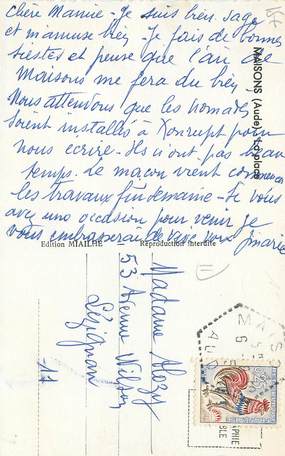 Chère Mamie - Je suis bien sage
et m'amuse bien - Je fais de bonnes
siestes et pense que l'air de
Maisons me fera du bien
Nous attendons que les nomades
soient installés à pour
nous écrire - Ils n'ont pas beau
temps. Le maçon vient commencer
les travaux fin semaine - Si vous
avez une occasion pour venir je
vous embrasserai de vive voix
MAISONS (Aude) - La place
Edition MIAILHE Reproduction interdite
Madame
53 Avenue Wilson
Lézignan